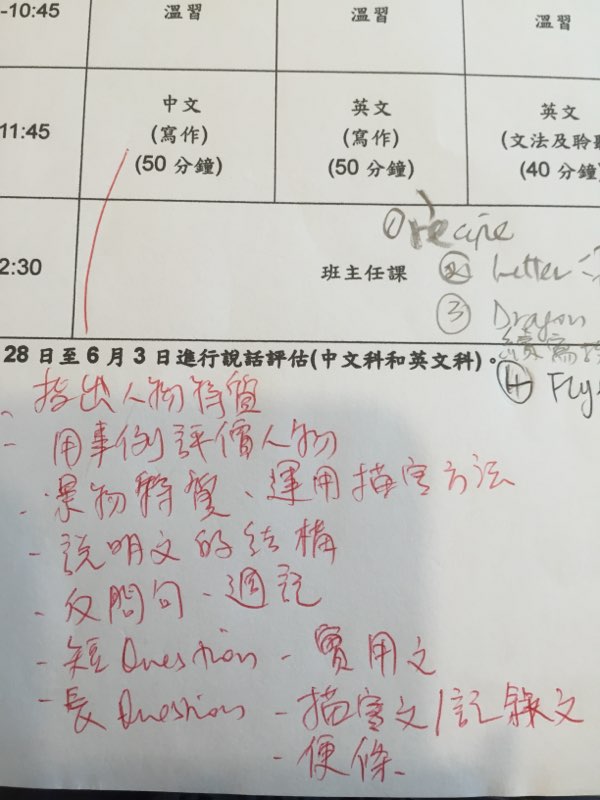 -10:45 溫習 溫習 溫習
11:45
中文 英文 英文
(寫作) (寫作) (文法及聆
(50 分鐘) (50 分鐘) (40 分鐘)
① recipe
2:30 班主任課 ② Letter
③ Dragon
續寫
28 日至 6 月 3 日進行說話評估(中文科和英文科)。
④ Fly
- 指出人物特質
- 用事例評價人物
- 景物特質、運用描寫方法
- 說明文的結構
- 反問句、週記
- 短 Question - 實用文
- 長 Question - 描寫文/記敘文
- 便條